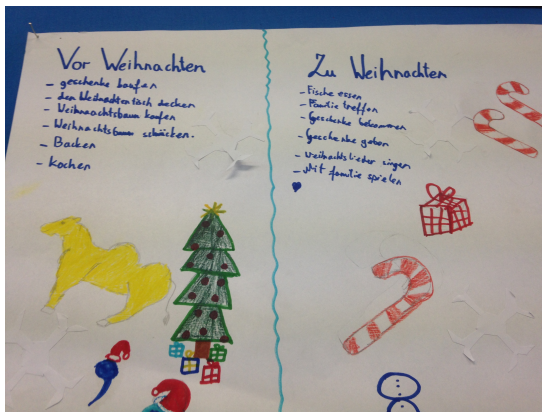 Vor Weihnachten
- geschenke kaufen
- den Weihnachtentisch decken
- Weihnachtsbaum kaufen
- Weihnachtsbaum schmücken.
- Backen
- Kochen
Zu Weihnachten
- Fische essen
- Familie treffen
- Geschenke bekommen
- Geschenke geben
- weihnachtslieder singen
- Mit familie spielen